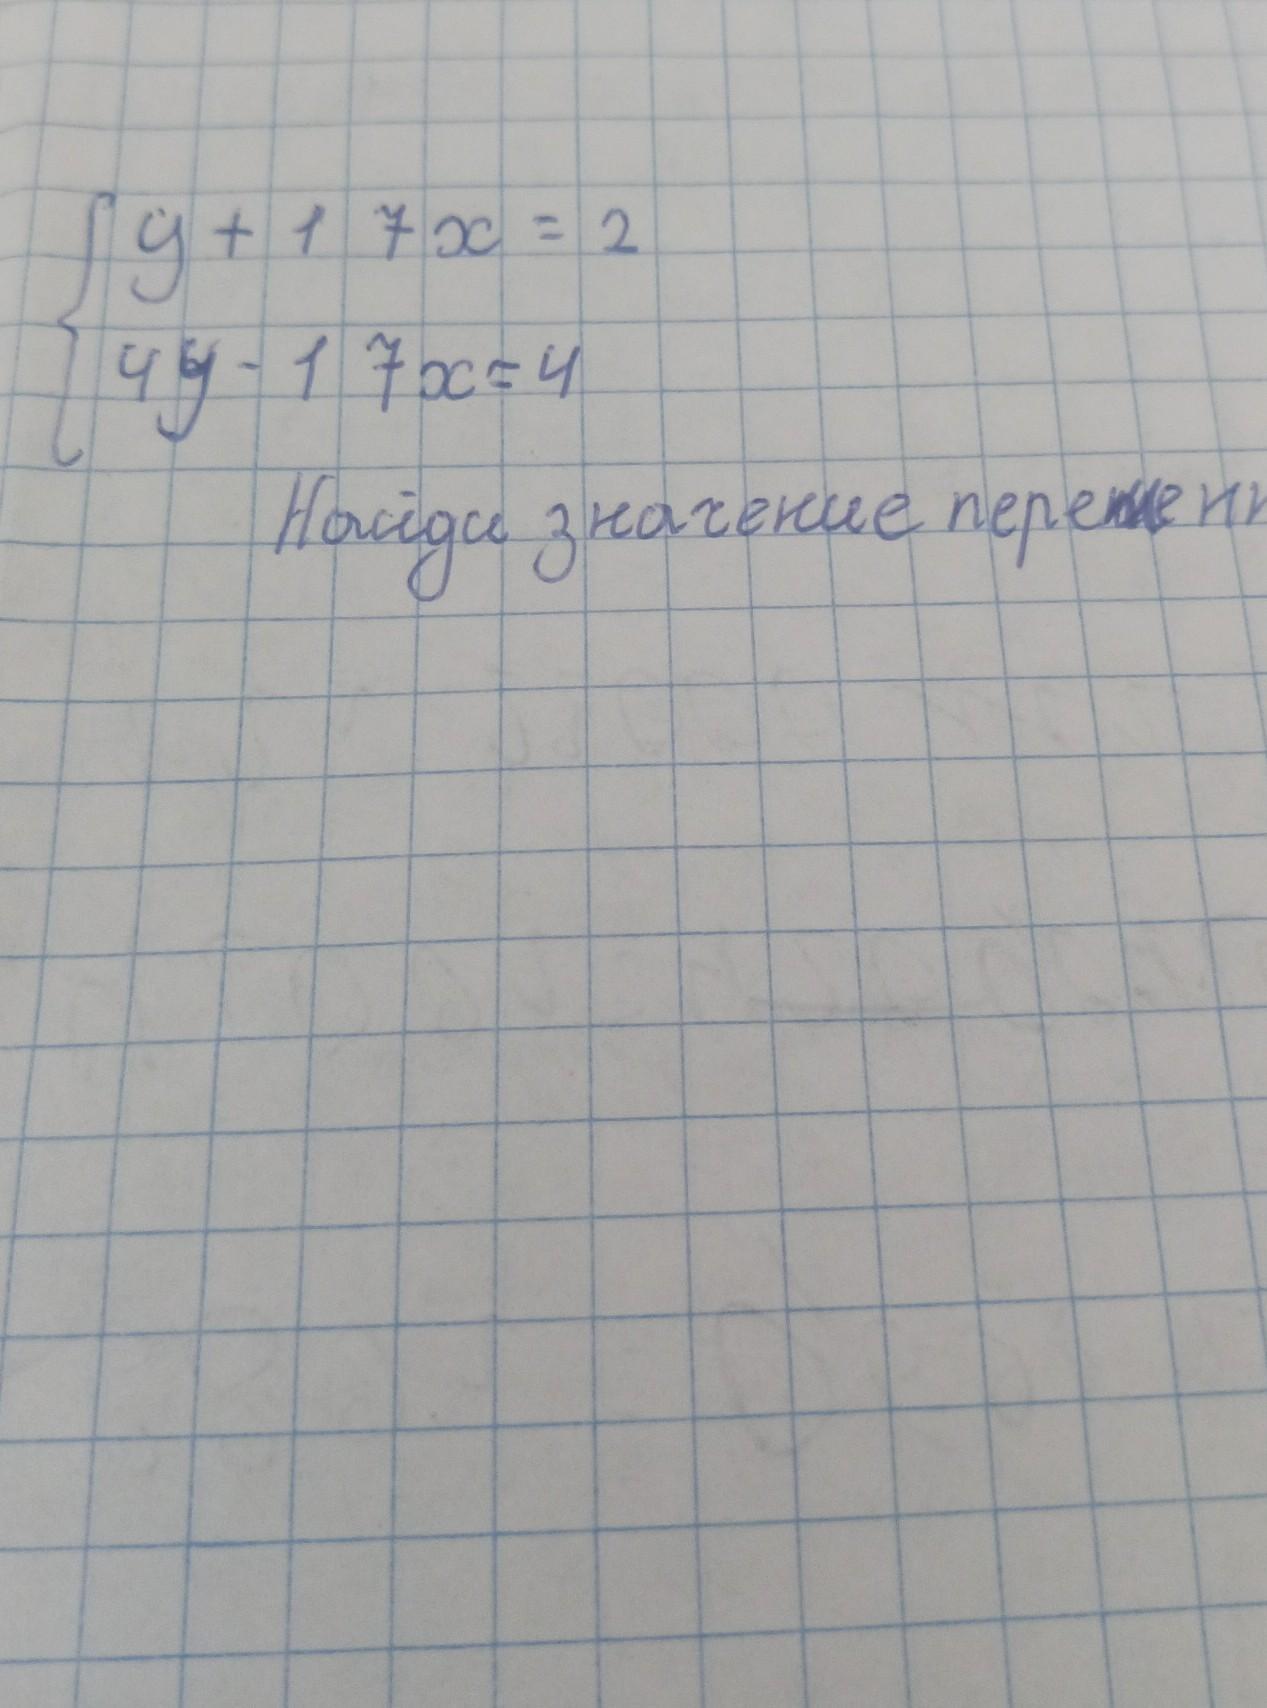 y + 1 7x = 2
4y - 1 7x = 4
Найди значение переменн